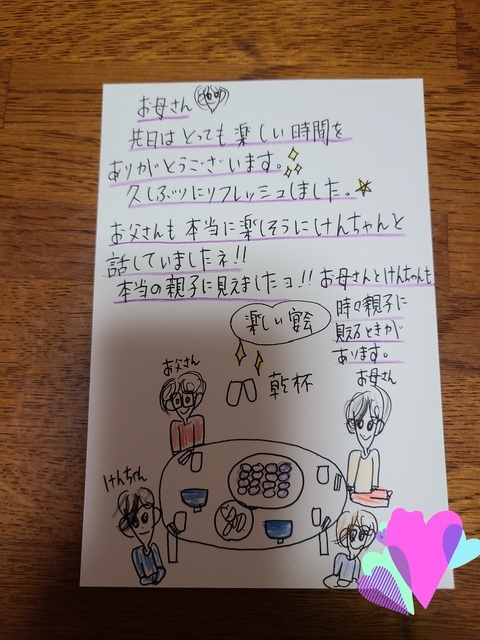 お母さん
先日はとっても楽しい時間を
ありがとうございます。
久しぶツにリフレッシュしました。
お父さんも本当に楽しそうにけんちゃんと
話していましたネ!!
本当の親子に見えましたョ!! お母さんとけんちゃんも
時々親子に
見えるときが
あります。
楽しい宴会
乾杯
お父さん
お母さん
けんちゃん